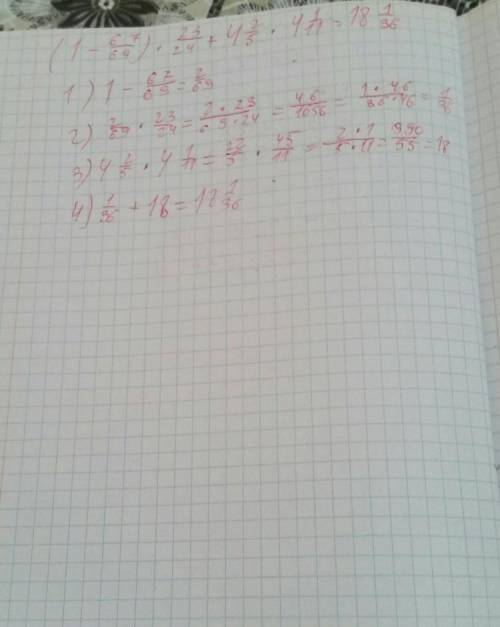 (1 - 67/69) · 23/24 + 4 2/5 · 4 1/11 = 18 1/36
1) 1 - 67/69 = 2/69
2) 2/69 · 23/24 = 2·23/69·24 = 46/1656 = 1·46/36·46 = 1/36
3) 4 2/5 · 4 1/11 = 22/5 · 45/11 = = 990/55 = 18
4) 1/36 + 18 = 18 1/36